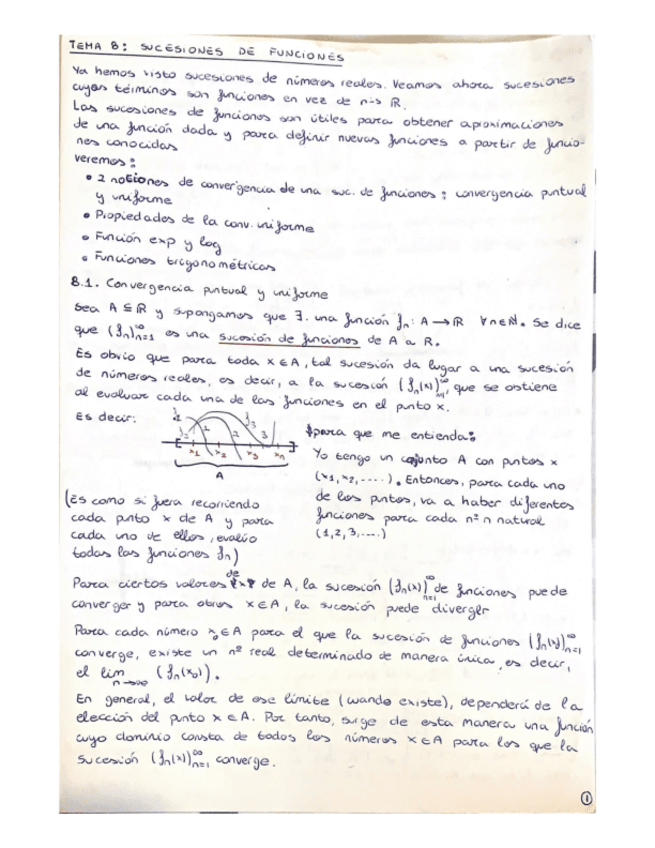 TEMA 8: SUCESIONES DE FUNCIONES
Ya hemos visto sucesiones de números reales. Veamos ahora sucesiones
cuyos términos son funciones en vez de nos ℝ.
Las sucesiones de funciones son útiles para obtener aproximaciones
de una función dada y para definir nuevas funciones a partir de funcio-
nes conocidas
veremos:
• 2 nociones de convergencia de una suc. de funciones: convergencia puntual
y uniforme
• Propiedades de la conv. uniforme
• Función exp y log
• Funciones trigonométricas
8.1. Convergencia puntual y uniforme
Sea A ⊆ ℝ y supongamos que ∃. una función fn: A → ℝ ∀n∈ℕ. Se dice
que (fn)∞n=1 es una sucesión de funciones de A a R.
Es obvio que para toda x∈A, tal sucesión da lugar a una sucesión
de números reales, es decir, a la sucesión (fn(x))∞n=1, que se obtiene
al evaluar cada una de las funciones en el punto x.
Es decir:
1 2 f3 3
x1 x2 x3 xn
A
para que me entienda:
Yo tengo un conjunto A con puntos x
(x1, x2, ....). Entonces, para cada uno
de los puntos, va a haber diferentes
funciones para cada nº n natural
(1,2,3,....)
(Es como si fuera recorriendo
cada punto x de A y para
cada uno de ellos, evalúo
todas las funciones fn)
Para ciertos valores de x de A, la sucesión (fn(x))∞n=1 de funciones puede
converger y para otros x∈A, la sucesión puede diverger
Para cada número x0∈A para el que la sucesión de funciones (fn(x))∞n=1
converge, existe un nº real determinado de manera única, es decir,
el lim n→∞ (fn(x0)).
En general, el valor de ese límite (cuando existe), dependerá de la
elección del punto x∈A. Por tanto, surge de esta manera una función
cuyo dominio consta de todos los números x∈A para los que la
sucesión (fn(x))∞n=1 converge.
1